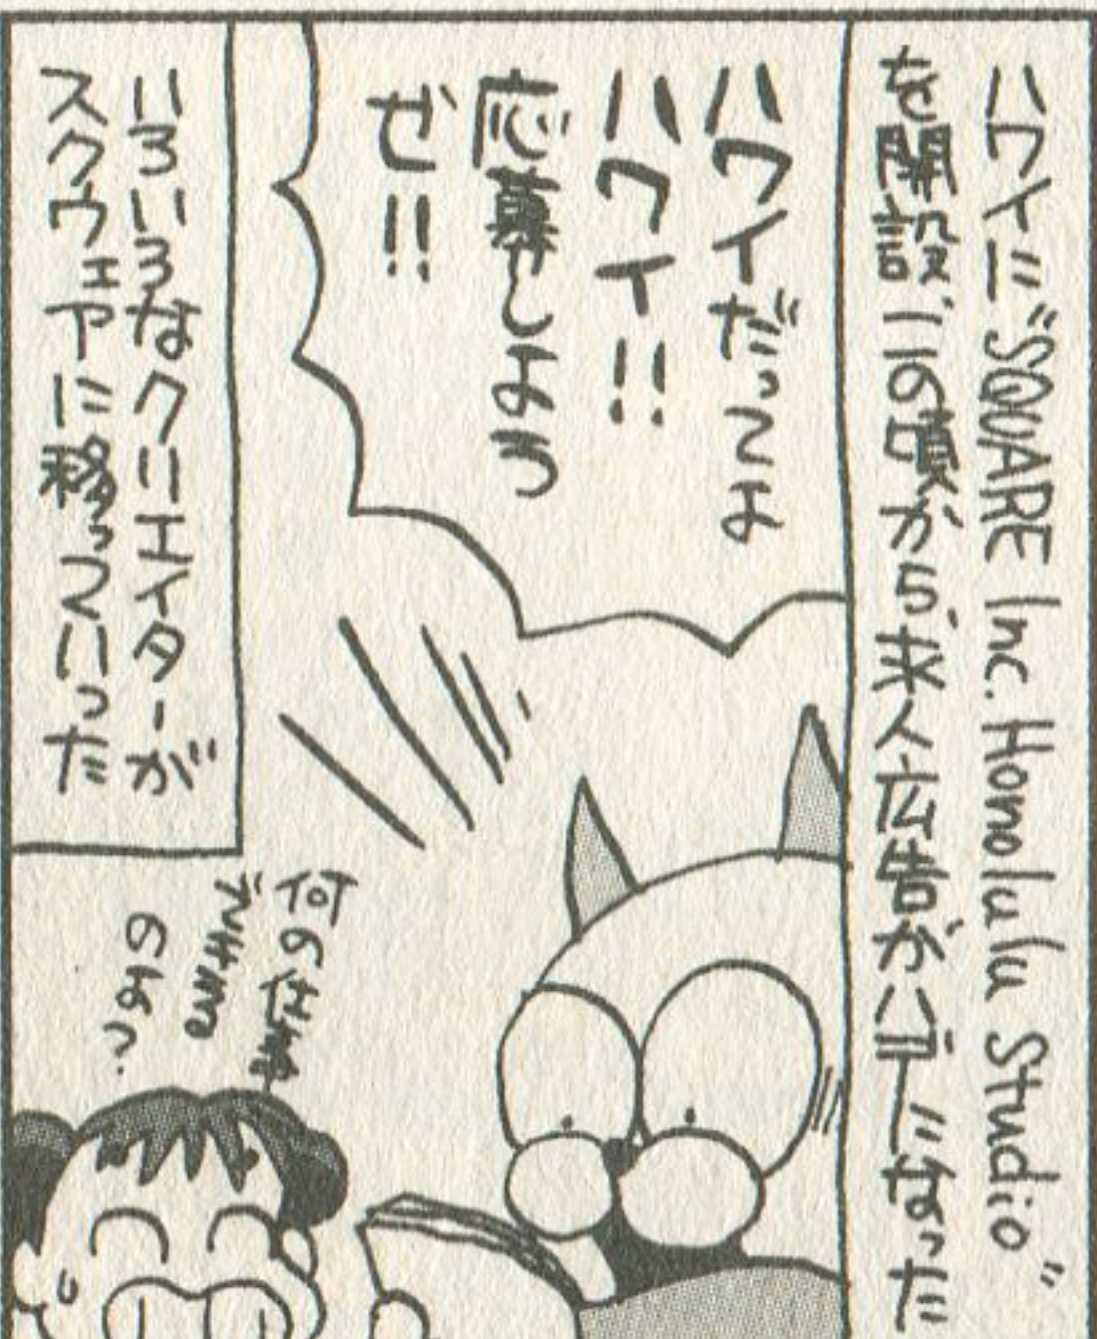 ハワイに"SQUARE Inc. Honolulu Studio"
を開設、この頃から、求人広告がハデになった
ハワイだってよ
ハワイ!!
応募しよう
ぜ!!
何の仕事
ざせる
のよ?
いろいろなクリエイターが
スクウェアに移っていった